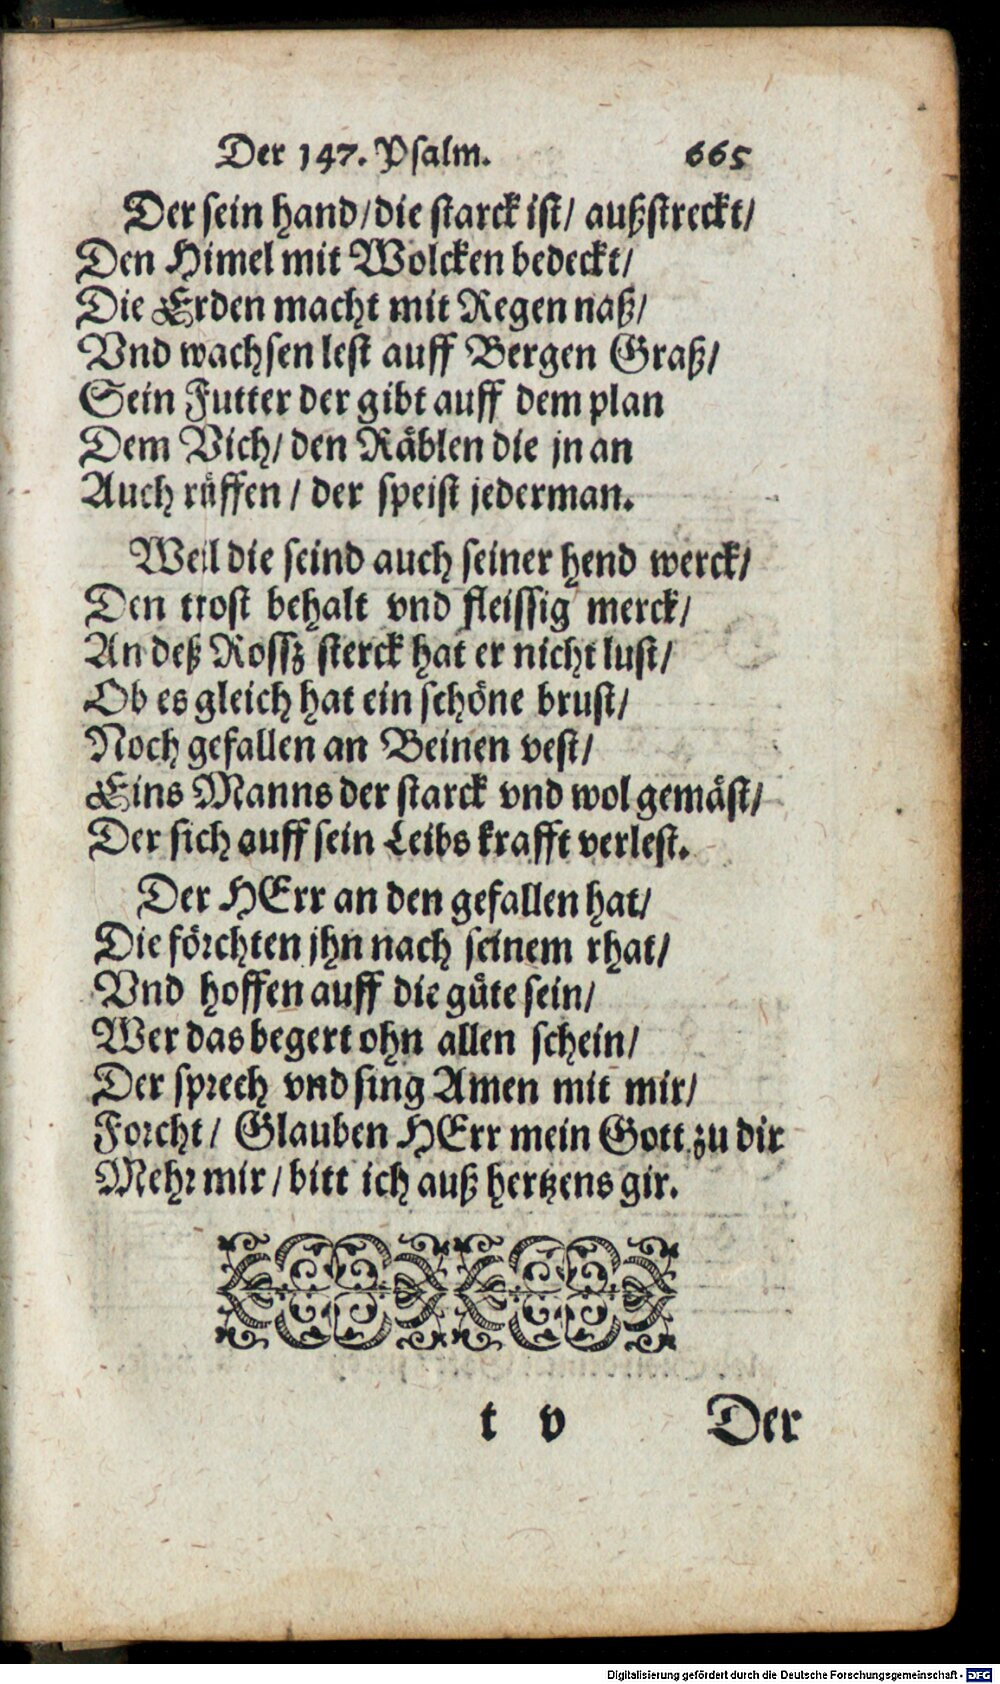 Der 147. Psalm. 665
Der sein hand/die starck ist/ außstreckt/
Den Himel mit Wolcken bedeckt/
Die Erden macht mit Regen naß/
Vnd wachsen lest auff Bergen Graß/
Sein Futter der gibt auff dem plan
Dem Vich/ den Räblen die jn an
Auch rüffen/ der speist jederman.
Weil die seind auch seiner hend werck/
Den trost behalt vnd fleissig merck/
An deß Rossz sterck hat er nicht lust/
Ob es gleich hat ein schöne brust/
Noch gefallen an Beinen vest/
Eins Manns der starck vnd wol gemäst/
Der sich auff sein Leibs krafft verlest.
Der HErr an den gefallen hat/
Die förchten jhn nach seinem rhat/
Vnd hoffen auff die güte sein/
Wer das begert ohn allen schein/
Der sprech vnd sing Amen mit mir/
Forcht/ Glauben HErr mein Gott zu dir
Mehr mir/ bitt ich auß hertzens gir.
t v Der
Digitalisierung gefördert durch die Deutsche Forschungsgemeinschaft - DFG